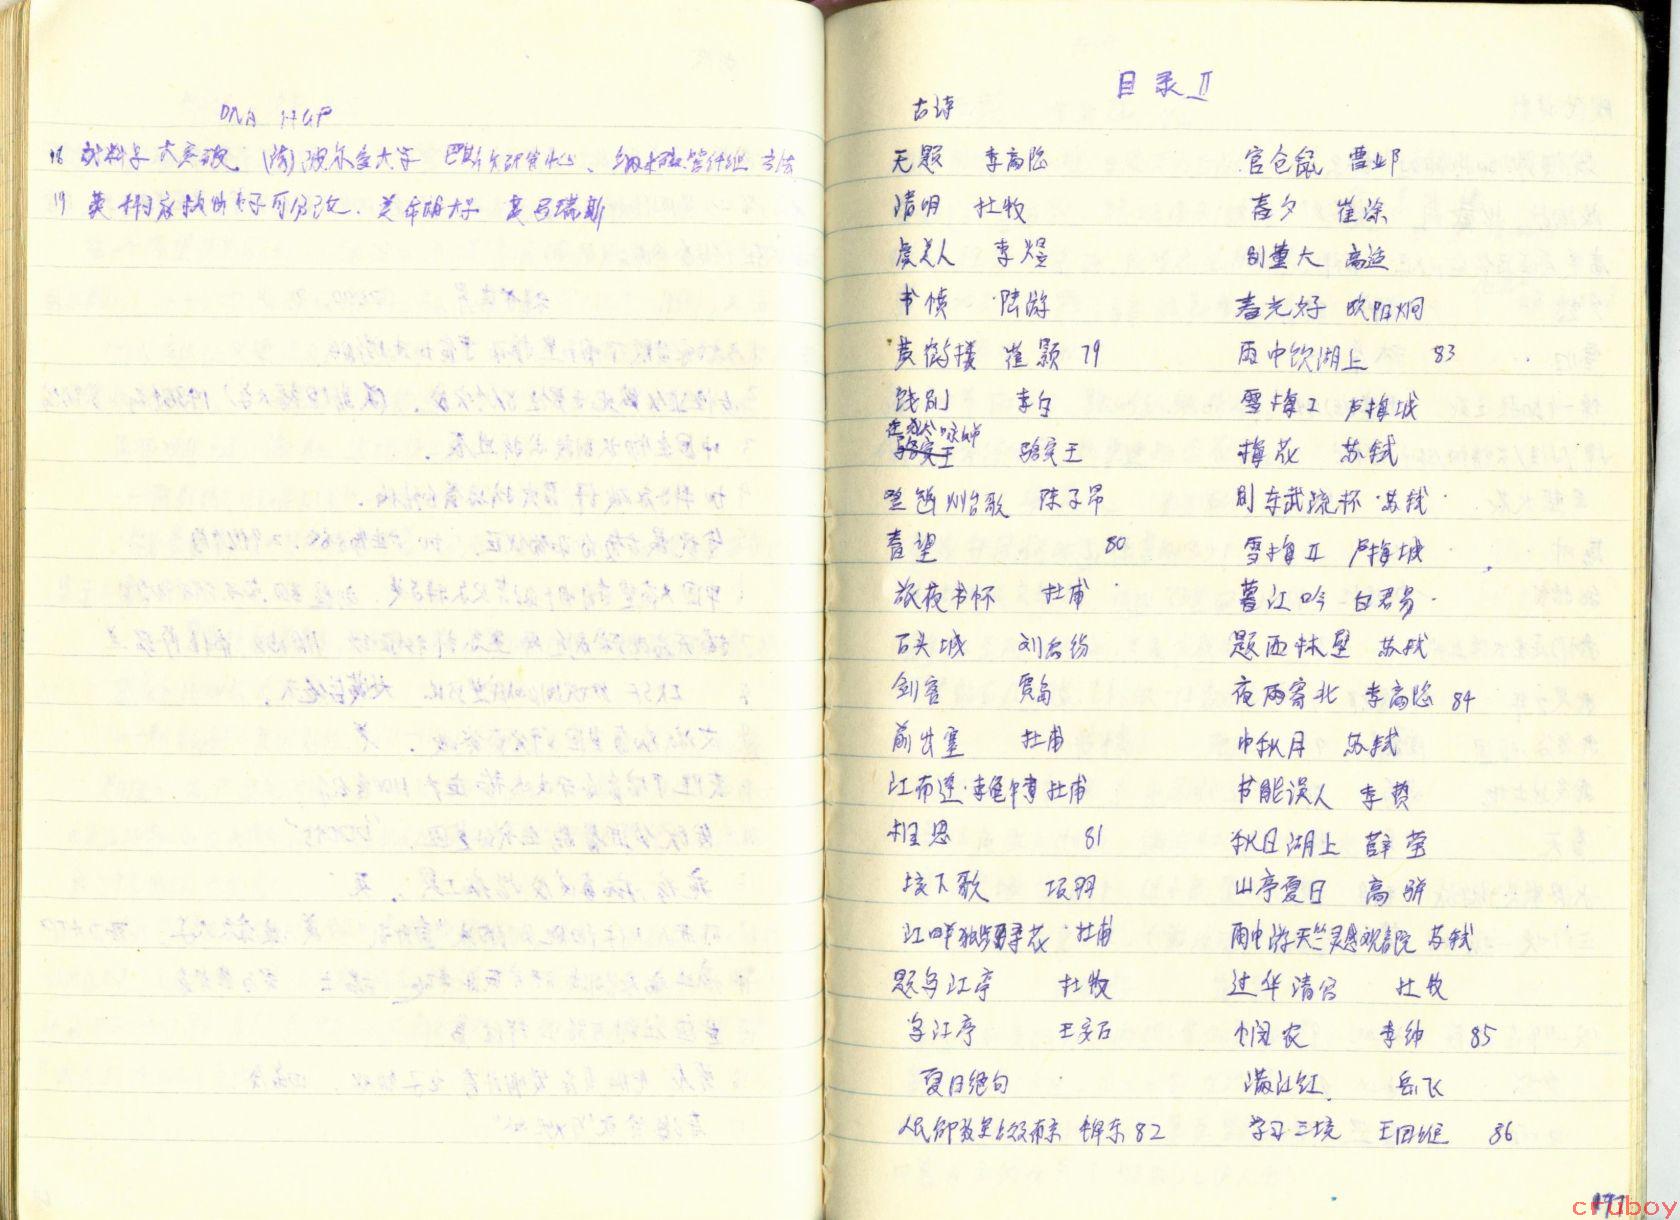 DNA HGP
18 材料学大突破. (陪)波尔多大学 巴斯 研究中心、纳米碳管纤维
19 英 电子可分
目录 II
古诗
无题 李商隐
清明 杜牧
虞美人 李煜
书愤 陆游
黄鹤楼 崔颢 79
饯别 李白
在狱 咏蝉
骆宾王 骆宾王
登幽州台歌 陈子昂
春望 80
旅夜书怀 杜甫
石头城 刘禹锡
剑客 贾岛
前出塞 杜甫
江南逢李龟年 杜甫
相思 81
垓下歌 项羽
江畔独步寻花 杜甫
题乌江亭 杜牧
乌江亭 王安石
夏日绝句
人民解放军占领南京 毛泽东 82
官仓鼠 曹邺
春夕 崔涂
别董大 高适
春光好 欧阳炯
雨中饮湖上 83
雪梅 I 卢梅坡
梅花 苏轼
别东武流杯 苏轼
雪梅 II 卢梅坡
暮江吟 白居易
题西林壁 苏轼
夜雨寄北 李商隐 84
中秋月 苏轼
书能误人 李贽
秋日湖上 薛莹
山亭夏日 高骈
雨中游天竺灵感观音院 苏轼
过华清宫 杜牧
悯农 李绅 85
满江红 岳飞
学习三境 王国维 86
197
cruboy